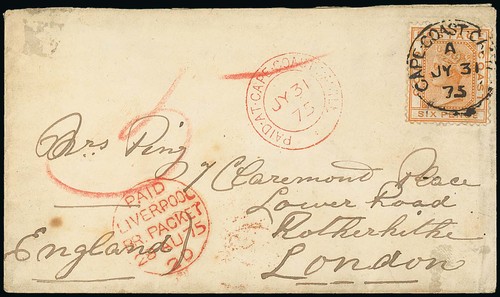 CAPE·COAST·CASTLE
A
JY 31
75
SIX PENCE
PAID·AT·CAPE·COAST·CASTLE
JY 31
75
5
Mrs Ping
7 Claremont Place
Lower Road
Rotherhithe
London
England
PAID
LIVERPOOL
BR. PACKET
28 AU 75